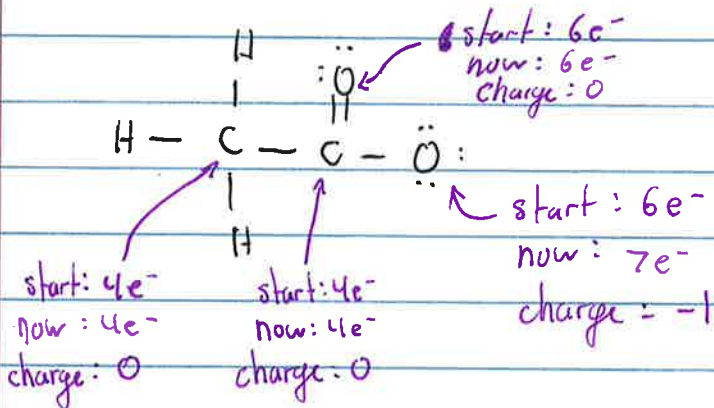 start: 6e⁻
now: 6e⁻
charge: 0
H
:Ö
H — C — C — Ö:
H
start: 6e⁻
now: 7e⁻
charge = -1
start: 4e⁻
now: 4e⁻
charge: 0
start: 4e⁻
now: 4e⁻
charge: 0